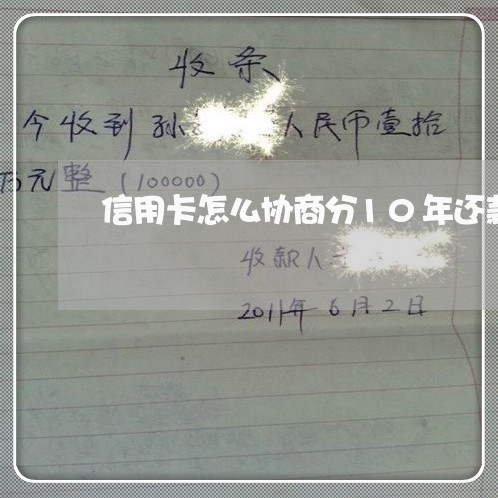 收条
今收到孙 人民币壹拾
万元整(100000)
信用卡怎么协商分10年还款
收款人
2011年6月2日